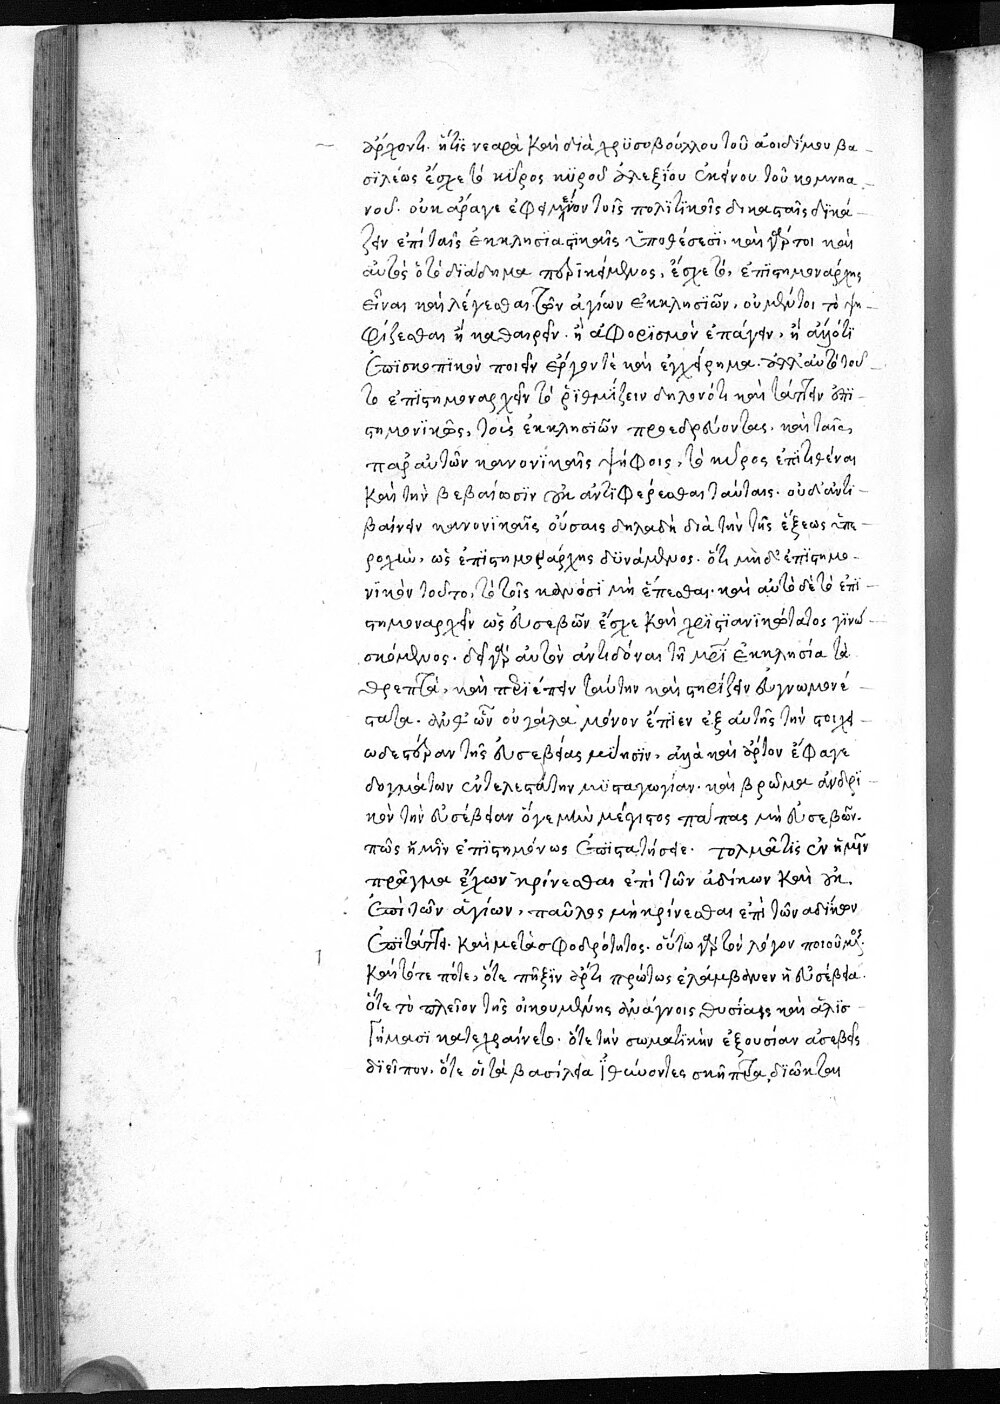 ἄρχοντι. ἥτις νεαρὰ καὶ διὰ χρυσοβούλλου τοῦ ἀοιδίμου βα-
σϊλέως ἔσχε τὸ κῦρος κυροῦ ἀλεξίου ἐκείνου τοῦ κομνηνα-
νοῦ. οὐκ ἄραγε ἐφειμένον τοῖς πολϊτικοῖς δικασταῖς δϊκά-
ζειν ἐπὶ ταῖς ἐκκλησϊαστϊκαῖς ὑποθέσεσϊ. καὶ γάρτοι καὶ
αὐτὸς ὁ τὸ δϊάδημα περικείμενος, ἔσχε τὸ, ἐπϊστημονάρχης
εἶναι καὶ λέγεσθαι τῶν ἁγίων ἐκκλησϊῶν, οὐ μέντοι τὸ ψη-
φίζεσθαι ἢ καθαιρεῖν. ἢ ἀφορϊσμὸν ἐπάγειν, ἢ ἄλλό τϊ
ἐπϊσκοπϊκὸν ποιεῖν ἔργόν τὲ καὶ ἐγχείρημα. ἀλλ' αὐτὸ τοῦ-
το ἐπϊστημοναρχεῖν τὸ ῥϊθμίζειν δηλονότι καὶ τάττειν ἐπϊ-
στημονϊκῶς, τοὺς ἐκκλησϊῶν προεδρεύοντας. καὶ ταῖς,
παρ' αὐτῶν κανονϊκαῖς ψήφοις, τὸ κῦρος ἐπϊτιθέναι
καὶ τὴν βεβαίωσϊν οὐκ ἀντϊφέρεσθαι ταύταις. οὐδ' ἀντι-
βαίνειν κανονϊκαῖς οὔσαις δηλαδὴ διὰ τὴν τῆς ἕξεως ὑπε-
ροχὴν, ὡς ἐπϊστημονάρχης δϋνάμενος. ὅτι μηδ' ἐπϊστημο-
νϊκὸν τοῦτο, τὸ τοῖς κανόσϊ μὴ ἕπεσθαι. καὶ αὐτὸ δὲ τὸ ἐπϊ-
στημοναρχεῖν ὡς εὐσεβῶν ἔσχε καὶ χρϊστϊανϊκώτατος γϊνω-
σκόμενος. δεῖ γὰρ αὐτὸν ἀντιδόναι τῆ μρϊ ἐκκλησία τὰ
θρεπτὰ, καὶ περϊέπειν ταύτην καὶ στηρίζειν εὐγνωμονέ-
στατα. ἀνθ' ὧν οὐ γάλα μόνον ἔπϊεν ἐξ αὐτῆς τὴν στοιχει-
ωδεστέραν τῆς εὐσεβείας μύησϊν, ἀλλὰ καὶ ἄρτον ἔφαγε
δογμάτων ἐντελεστάτην μϋσταγωγίαν. καὶ βρῶμα ἀνδρϊ-
κὸν τὴν εὐσέβειαν ὅγε μὴν μέγιστος πάπας μὴ εὐσεβῶν.
πῶς ἡμῖν ἐπϊστημόνως ἐπϊστατήσειε. τολμᾶτϊς ἐν ἡμῖν
πρᾶγμα ἔχων κρίνεσθαι ἐπὶ τῶν ἀδίκων καὶ οὐκ
ἐπὶ τῶν ἁγίων, παῦλος μὴ κρίνεσθαι ἐπὶ τῶν ἀδίκων
ἐπϊτάττει. καὶ μετὰ σφοδρότητος. οὕτω γὰρ τὸν λόγον ποιούμενος.
καὶ τότε πότε, ὅτε πῆξϊν ἄρτι πρώτως ἐλάμβανεν ἡ εὐσέβεια.
ὅτε τὸ πλεῖον τῆς οἰκουμένης ἐναγνοις θυσίαις καὶ ἀλϊσ-
γήμασϊ κατεχραίνετο. ὅτε τὴν σωματϊκὴν ἐξουσίαν ἀσεβεῖς
δϊεῖπον. ὅτε οἱ τὰ βασίλεια ἰθύνοντες σκῆπτρα, διῶκται